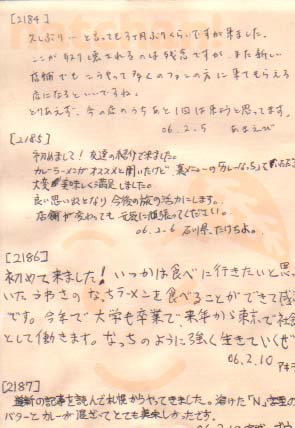 [2184]
久しぶり…と言っても3ヶ月ぶりくらいですが来ました。
ここが取り壊されるのは残念ですが、また新しい
店舗でもこうやって多くのファンの方に来てもらえる
店になるといいですね。
とりあえず、今の店のうちあと1回は来ようと思ってます。
06.2.5 あまえび
[2185]
初めまして!友達の紹介で来ました。
カレーラーメンがオススメと聞いたけど、裏メニューの「カレーなっち」で
大変美味しく満足しました。
良い思い出となり今後の旅の活力にします。
店舗が変わっても元気に頑張ってください。
06.2.6 石川県、たけちよ。
[2186]
初めて来ました!いつかは食べに行きたいと思
いたうわさのなっちラーメンを食べることができて感
です。今年で大学も卒業で、来年から東京で社会
として働きます。なっちのように強く生きていくぜ
06.2.10 アキ
[2187]
最新の記事を読んで札幌からやってきました。溶けた「N」字型の
バターとカレーが混ざってとても美味しかったです。